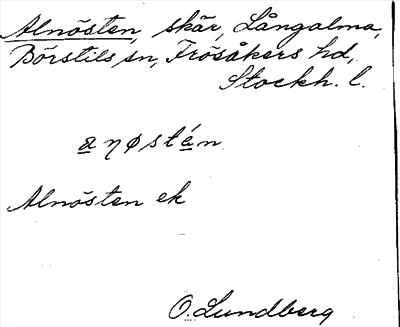 Alnösten, skär, Långalma,
Börstils sn, Frösåkers hd,
Stockh. l.
a̲ŋøsté̲n
Alnösten ek
O. Lundberg